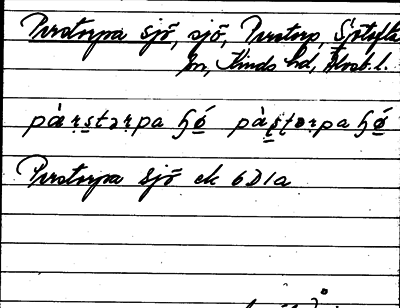 Perstorpa sjö, sjö, Perstorp, Sjötofta
sn, Kinds hd, Älvsb. l.
pàṛs̱təṛpa ɧö̱ pàṣṭəṛpa ɧø̱
Perstorpa sjö ek 6D1a